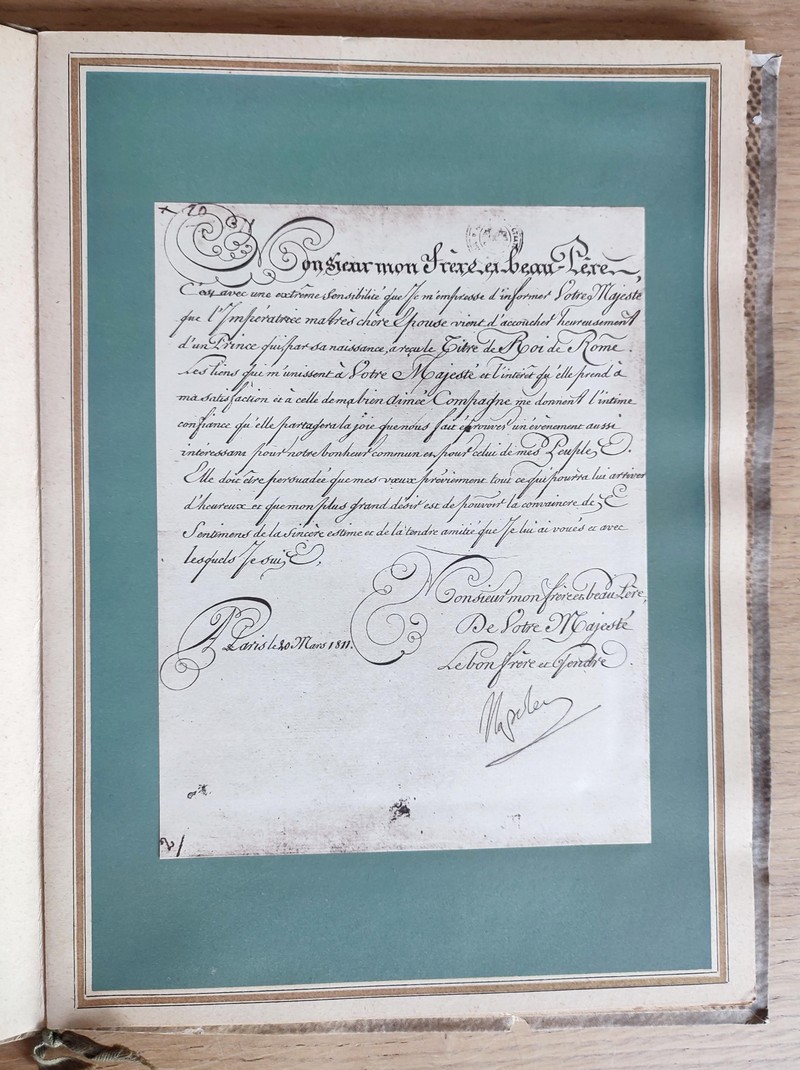 x 20
Monsieur mon frère et beau-Père,
C'est avec une extrême sensibilité que Je m'empresse d'informer Votre Majesté
que l'Impératrice ma très chère Epouse vient d'accoucher heureusement
d'un Prince qui, par sa naissance, a reçu le Titre de Roi de Rome.
Les liens qui m'unissent à Votre Majesté et l'intérêt qu'elle prend à
ma satisfaction et à celle de ma bien aimée Compagne me donnent l'intime
confiance qu'elle partagera la joie que nous fait éprouver un évènement aussi
intéressant pour notre bonheur commun et pour celui de mes Peuples.
Elle doit être persuadée que mes vœux préviennent tout ce qui pourra lui arriver
d'heureux et que mon plus grand désir est de pouvoir la convaincre des
Sentimens de la sincère estime et de la tendre amitié que Je lui ai voués et avec
lesquels Je suis,
Monsieur mon frère et beau Père,
De Votre Majesté
A Paris le 20 Mars 1811.
Le bon frère et Gendre.
Napoleon